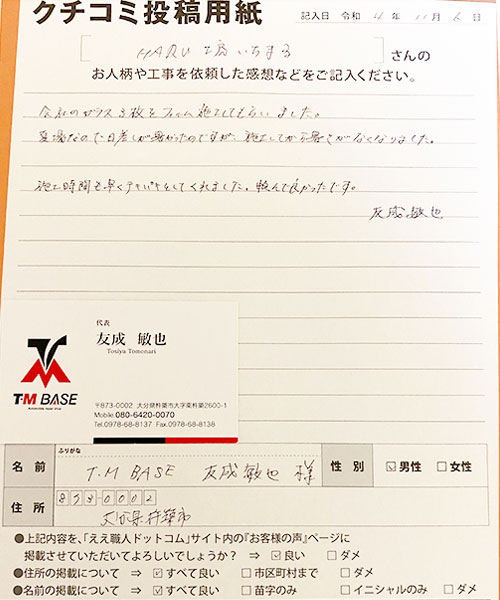 クチコミ投稿用紙
記入日 令和 4年 11月 6日
HARU工房 いちまる
さんの
お人柄や工事を依頼した感想などをご記入ください。
会社のガラス3枚をフィルム施工してもらいました。
夏場なので日差しが暑かったのですが、施工してから暑さがなくなりました。
施工時間も早くテキパキとしてくれました。頼んで良かったです。
友成敏也
代表
友成 敏也
Tosiya Tomonari
T·M BASE
〒873-0002 大分県杵築市大字南杵築2600-1
Mobile.080-6420-0070
Tel.0978-68-8137 Fax.0978-68-8138
ふりがな
名前 T.M BASE 友成敏也 様 性別 ☑男性 □女性
住所 873-0002
大分県杵築市
●上記内容を、「ええ職人ドットコム」サイト内の『お客様の声』ページに
掲載させていただいてよろしいでしょうか? ⇒ ☑良い □ダメ
●住所の掲載について ⇒ ☑すべて良い □市区町村まで □ダメ
●名前の掲載について ⇒ ☑すべて良い □苗字のみ □イニシャルのみ □ダメ